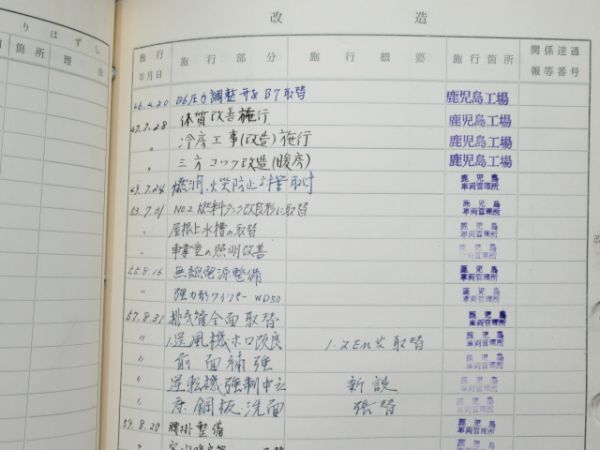 りはずし
箇所 理由
改造
施行年月日 施行部分 施行概要 施行箇所 関係達通報等番号
46.2.20 B6圧力調整弁を B7取替 鹿児島工場
47.7.28 体質改善施行 鹿児島工場
〃 冷房工事(改造)施行 鹿児島工場
〃 三方コック改造(暖房) 鹿児島工場
49.7.24 火災防止 取付 鹿児島車両管理所
53.7.21 NO2.燃料タンク改良形に取替 鹿児島車両管理所
〃 屋根上水槽の取替 鹿児島車両管理所
〃 車掌室の照明改善 鹿児島車両管理所
55.8.16 無線電源整備 鹿児島車両管理所
〃 強力形ワイパー WD50 鹿児島車両管理所
57.8.31 排気管全面取替 鹿児島車両管理所
〃 送風機 口改良 取替 鹿児島車両管理所
〃 前面補強 鹿児島車両管理所
〃 逆転機強制中立 新設 鹿児島車両管理所
〃 床鋼板洗面 張替 鹿児島車両管理所
59.8.28 腰掛整備 鹿児島車両管理所